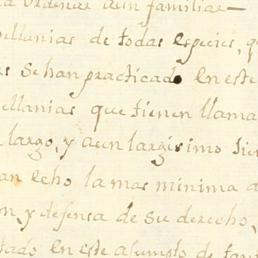 a ordenar a un familiar—
pellanias de todas especies, q
as se han practicado en este
pellanias que tienen llama
largo, y aun largisimo tie
an echo la mas minima a
on, y defensa de su derecho,
tado en este asumpto de tan